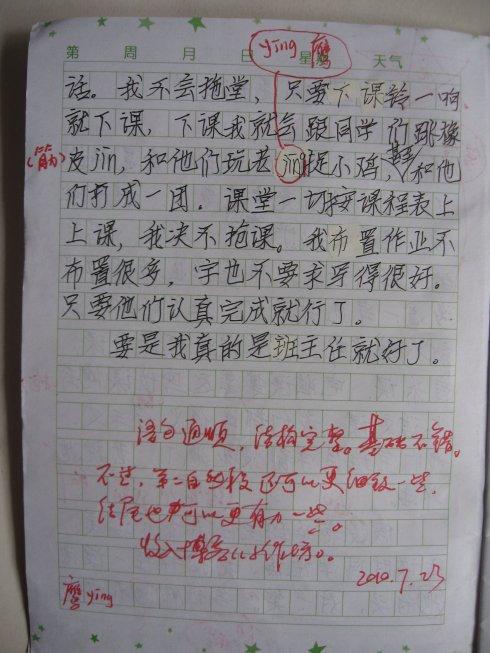 ying 鹰
第 周 月 日 星期 天气
话。我不会拖堂，只要下课铃一响
就下课，下课我就会跟同学们跳橡
(筋)
皮jin，和他们玩老jing捉小鸡，和他
们打成一团。课堂一切按课程表上
上课，我决不抢课。我布置作业不
布置很多，字也不要求写得很好。
只要他们认真完成就行了。
要是我真的是班主任就好了。
语句通顺，结构完整。基础不错。
不过，第二自然段还可以更细致一些，
结尾也可以更有力一些。
2010.7.23
鹰 ying